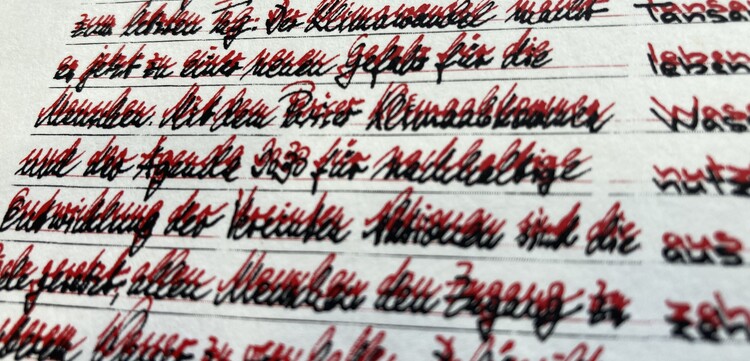 zum letzten Tag. Der Klimawandel macht
es jetzt zu einer neuen Gefahr für die
Menschen. Mit dem Pariser Klimaabkommen
und der Agenda 2030 für nachhaltige
Entwicklung der Vereinten Nationen sind die
gesetzt, allen Menschen den Zugang zu
Wasser zu
leben
Was
nutz
aus